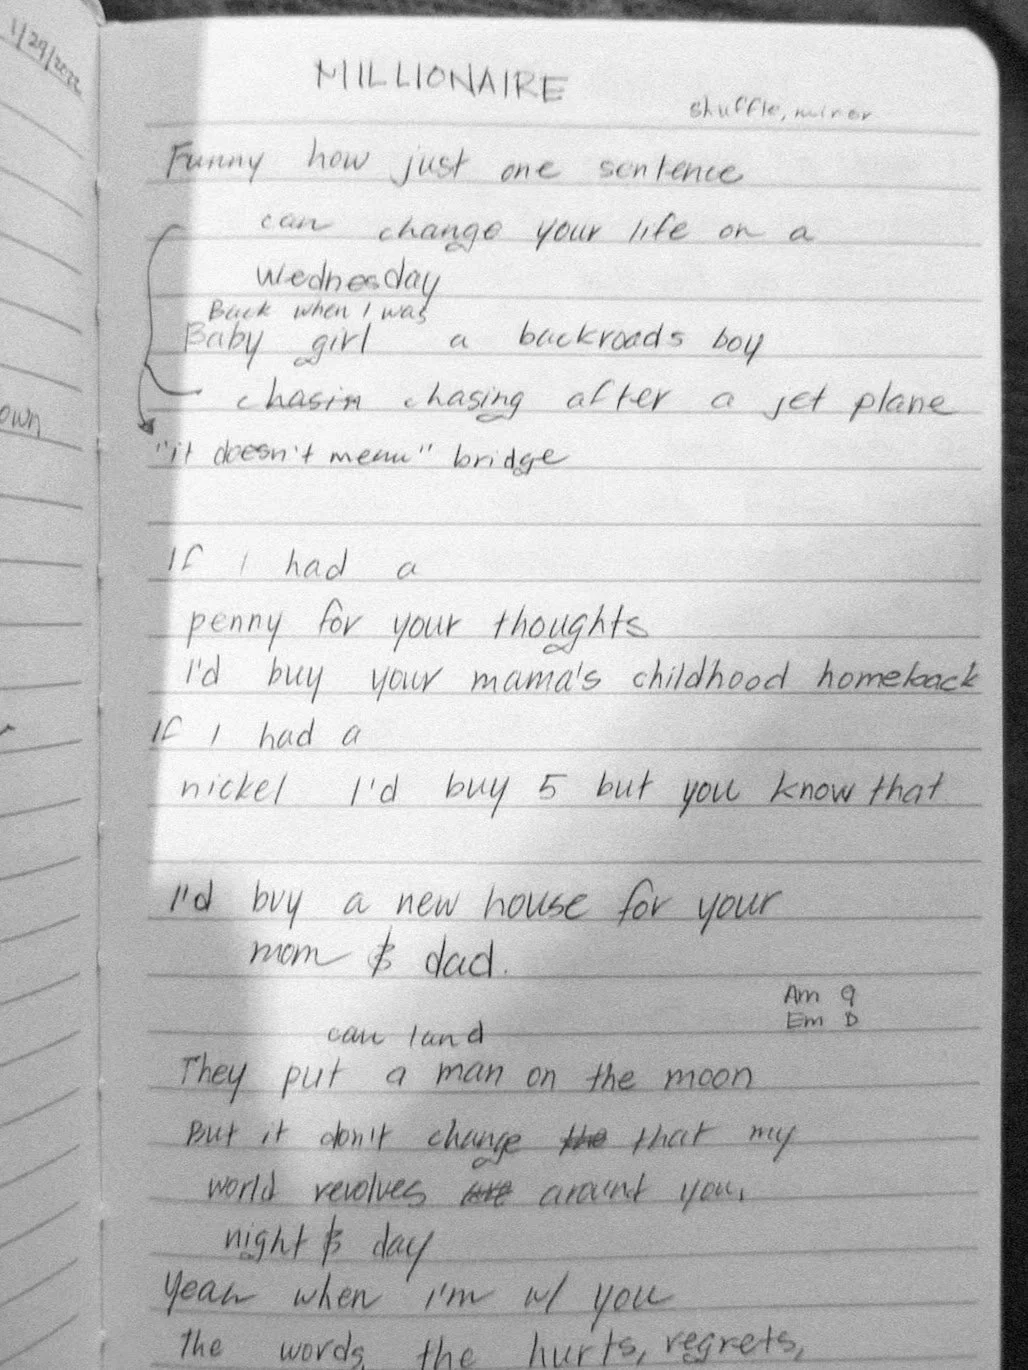 1/29/2022
own
MILLIONAIRE
shuffle, minor
Funny how just one sentence
can change your life on a
Wednesday
Back when I was
Baby girl a backroads boy
chasin chasing after a jet plane
"it doesn't mean" bridge
If I had a
penny for your thoughts
I'd buy your mama's childhood home back
If I had a
nickel I'd buy 5 but you know that
I'd buy a new house for your
mom & dad.
Am 9
Em D
can land
They put a man on the moon
But it don't change the that my
world revolves are around you,
night & day
Yeah when I'm w/ you
The words, the hurts, regrets,